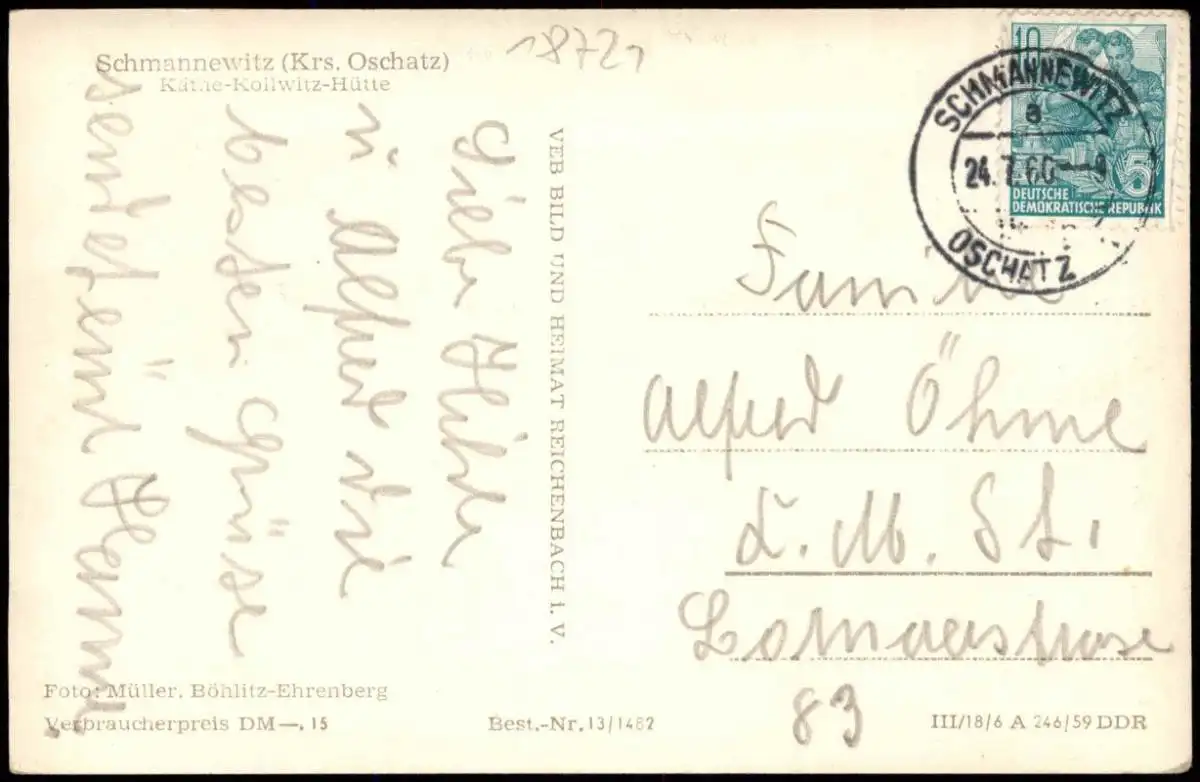 Schmannewitz (Krs. Oschatz)
Käthe-Kollwitz-Hütte
18721
Liebe Hilde
u Alfred die
besten Grüsse
sendet eure
VEB BILD UND HEIMAT REICHENBACH i. V.
10
SCHMANNEWITZ
a
24.7.60--9
OSCHATZ
5
DEUTSCHE
DEMOKRATISCHE REPUBLIK
Familie
Alfred Öhme
K. M. St.
83
Foto: Müller, Böhlitz-Ehrenberg
Verbraucherpreis DM—,15
Best.-Nr. 13/1482
III/18/6 A 246/59 DDR